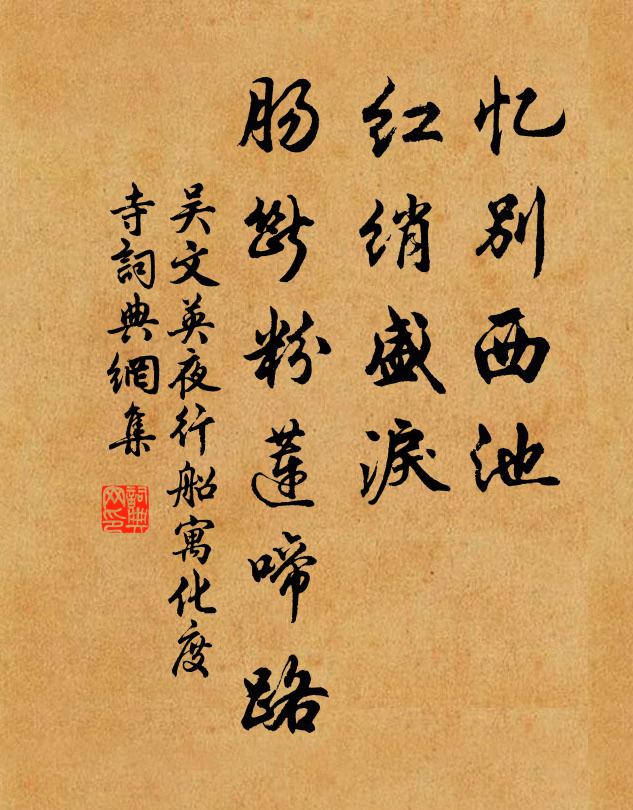 忆别西池
红绡盛淚
肠断粉莲啼路
吴文英夜行船寓化度
寺詞典網集
詞典
网印